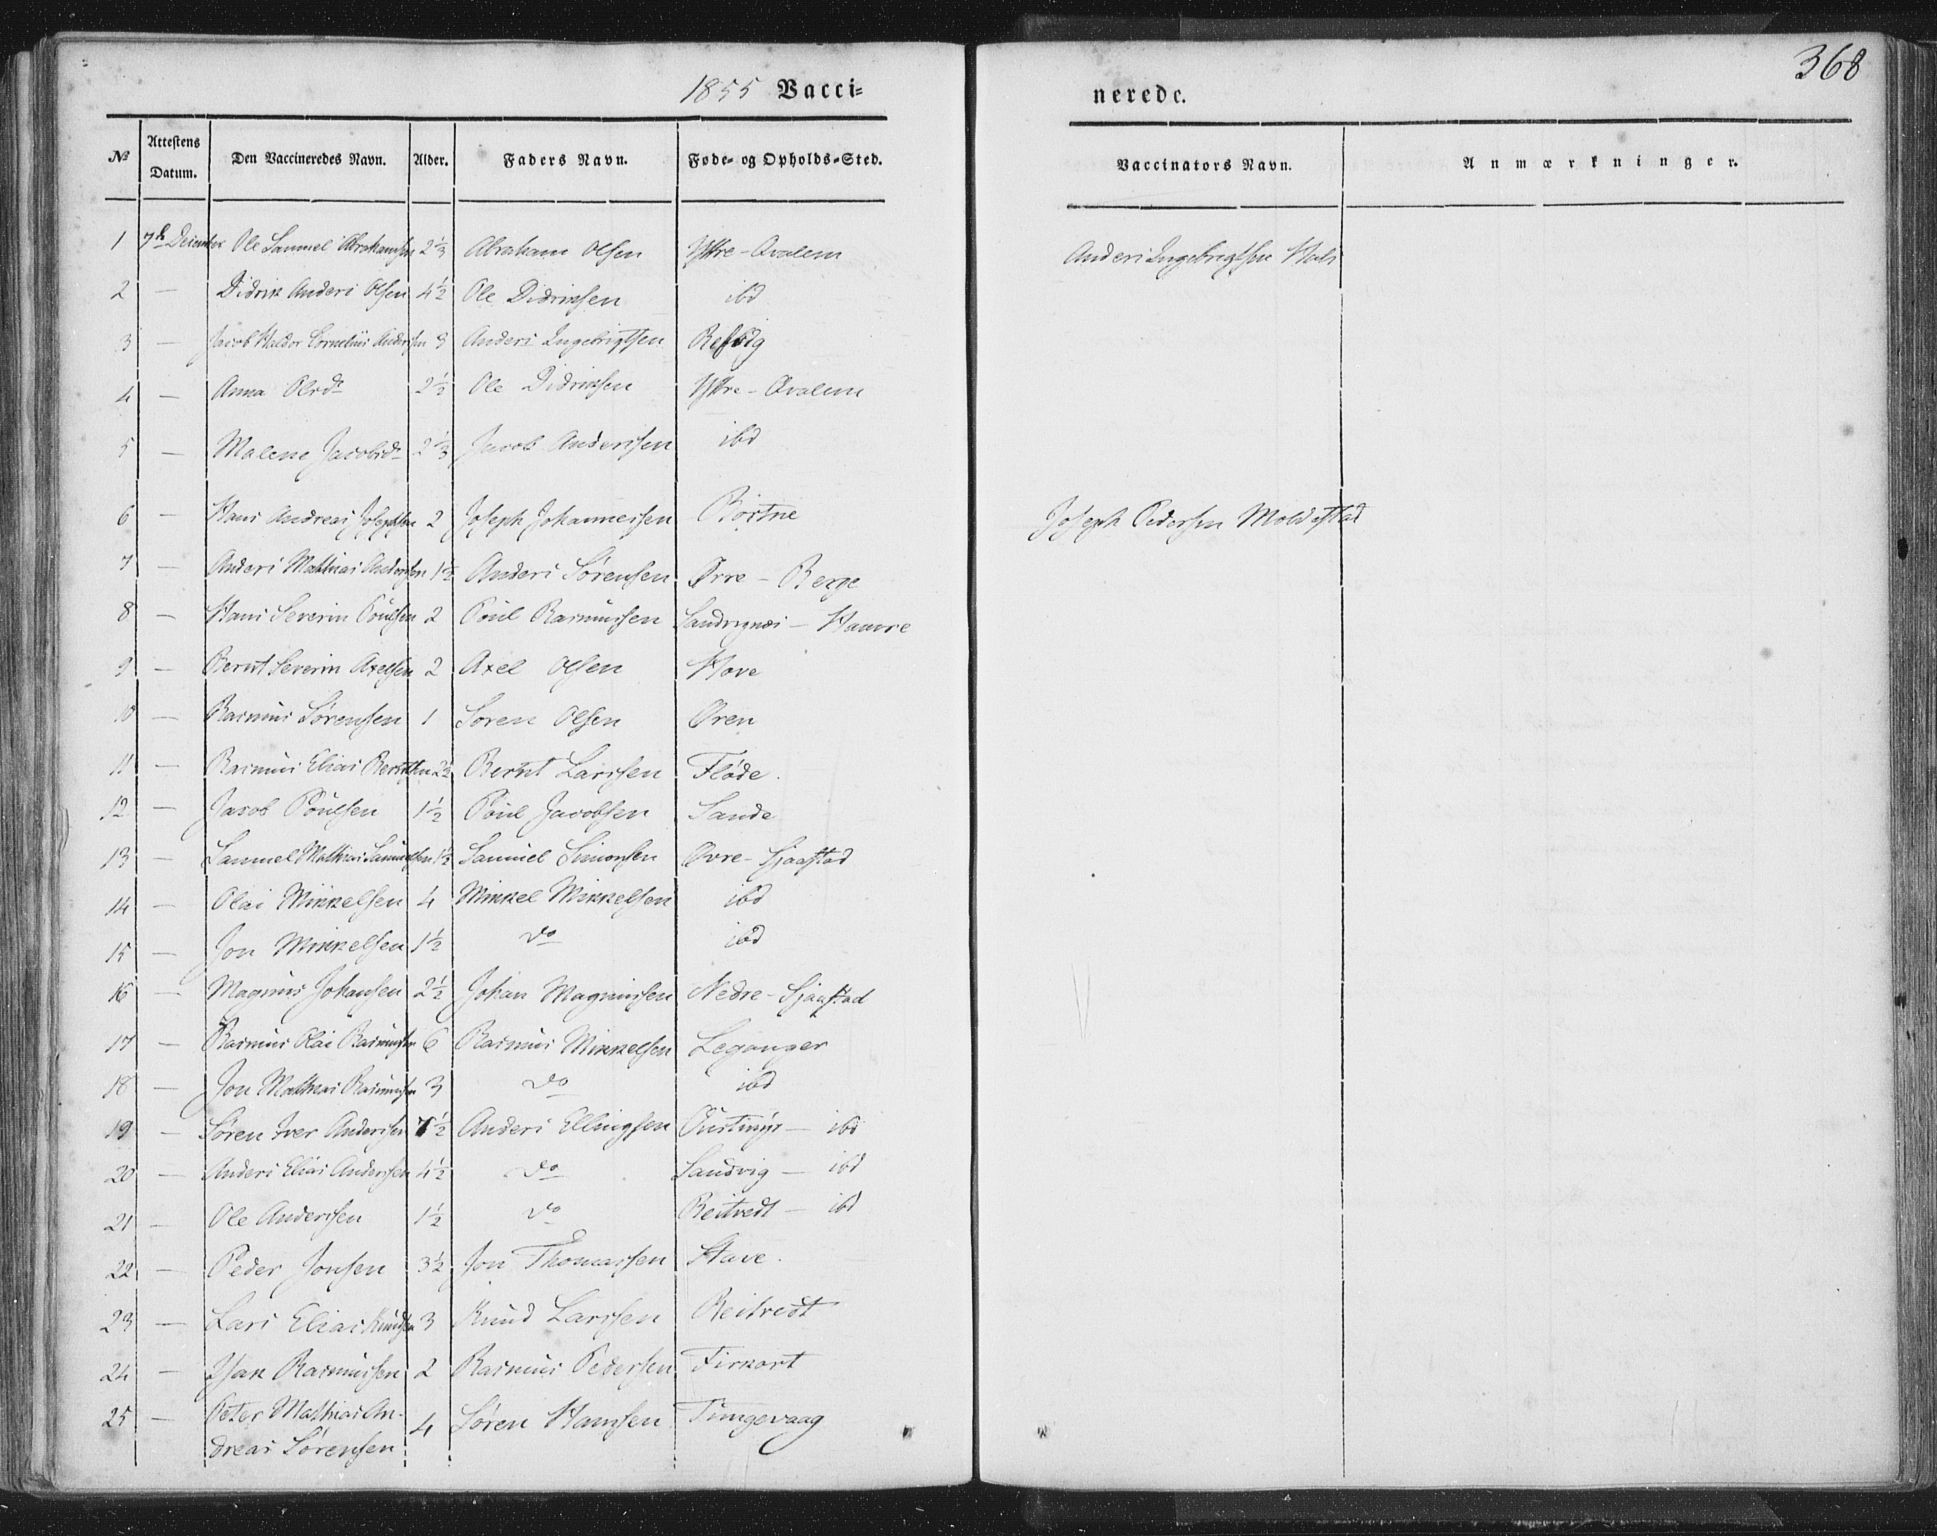 368
1855 Vacci-
nerede.
№ Attestens Datum. Den Vaccineredes Navn. Alder. Faders Navn. Føde- og Opholds-Sted. Vaccinators Navn. Anmærkninger.
1 7de December Ole Samuel Abrahamsen 2 1/3 Abraham Olsen Yttre-Qvalem Anders Ingebrigtsen Hals
2 — Didrik Anders Olsen 4 1/2 Ole Didriksen ibd
3 — Jacob Haldor Cornelius Andersen 3 Anders Ingebrigtsen Refvig
4 — Anna Olsdr 2 1/2 Ole Didriksen Yttre-Qvalem
5 — Malene Jacobsdr 2 1/3 Jacob Andersen ibd
6 — Hans Andreas Josephsen 2 Joseph Johannessen Børtne Joseph Pedersen Moldestad
7 — Anders Mathias Andersen 1 1/2 Anders Sørensen Øvre-Berge
8 — Hans Severin Poulsen 2 Poul Rasmussen Haavre
9 — Bernt Severin Axelsen 2 Axel Olsen Hove
10 — Rasmus Sørensen 1 Søren Olsen Øren
11 — Rasmus Elias Berntsen 2 1/2 Bernt Larssen Fløde.
12 — Jacob Poulsen 1 1/2 Poul Jacobsen Sande
13 — Samuel Mathias Samuelsen 1 1/3 Samuel Simonsen Øvre-Sjaastad
14 — Olai Mikkelsen 4 Mikkel Mikkelsen ibd
15 — Jon Mikkelsen 1 1/2 do ibd
16 — Magnus Johansen 2 1/2 Johan Magnussen Nedre-Sjaastad
17 — Rasmus Olai Rasmussen 6 Rasmus Mikkelsen Leganger
18 — Jon Mathias Rasmussen 3 do ibd
19 — Søren Iver Anderssen 7 1/2 Anders Ellingsen — ibd
20 — Anders Elias Anderssen 4 1/2 do Sandvig — ibd
21 — Ole Anderssen 1 1/2 do Reitvedt — ibd
22 — Peder Jonsen 3 1/2 Jon Thomassen Stave.
23 — Lars Elias Knudsen 3 Knud Larssen Reitvedt
24 — Isak Rasmussen 2 Rasmus Pedersen
25 — Peter Mathias An-
dreas Sørensen 4 Søren Hansen Tungevaag